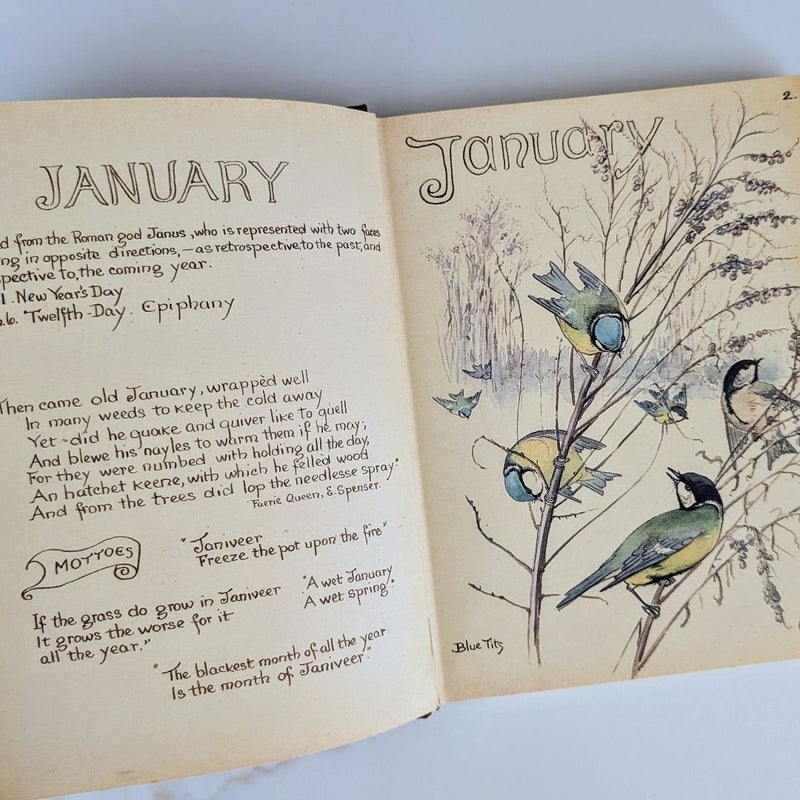 JANUARY
d from the Roman god Janus, who is represented with two faces
ng in opposite directions, — as retrospective to the past, and
spective to, the coming year.
1. New Year's Day
6. Twelfth-Day. Epiphany
Then came old January, wrappèd well
In many weeds to keep the cold away
Yet did he quake and quiver like to quell
And blewe his nayles to warm them if he may;
For they were numbed with holding all the day,
An hatchet keene, with which he felled wood
And from the trees did lop the needlesse spray."
Faerie Queen, E. Spenser.
MOTTOES
"Janiveer
Freeze the pot upon the fire"
If the grass do grow in Janiveer
It grows the worse for it
all the year."
"A wet January
A wet spring."
"The blackest month of all the year
Is the month of Janiveer."
2.
January
Blue Tits